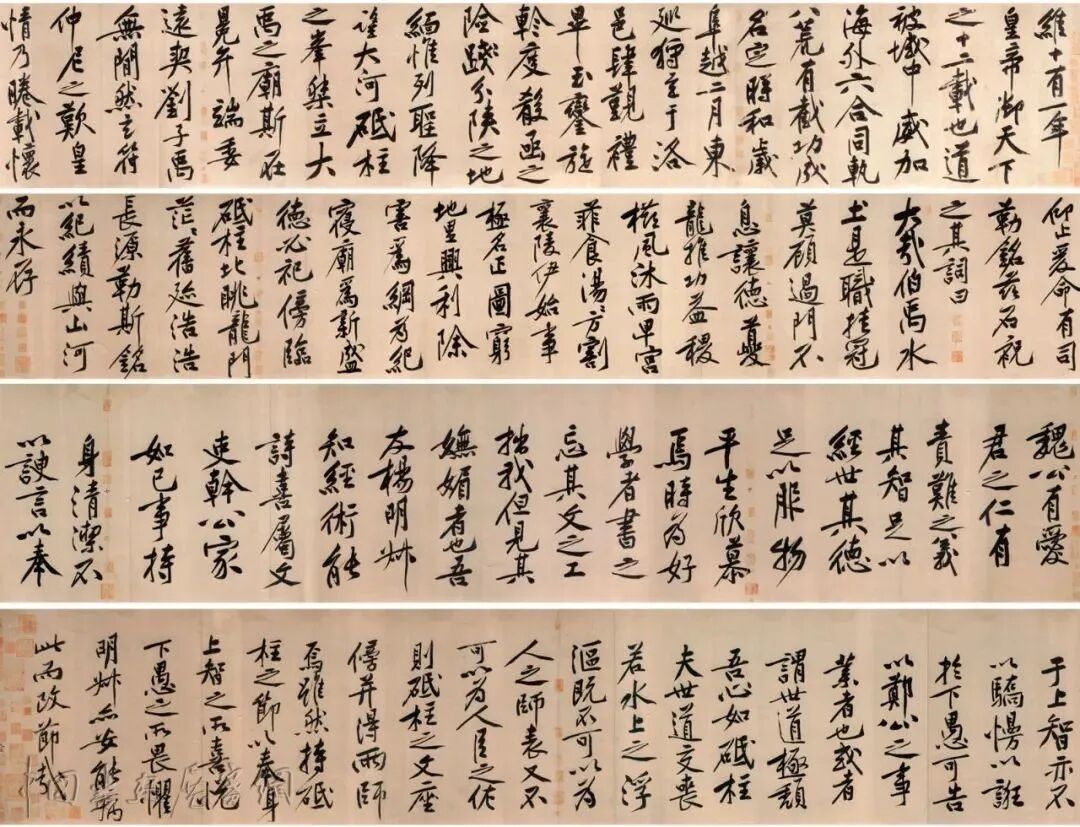 維十有一年
皇帝御天下
之十二載也道
被域中威加
海外六合同軌
八荒有截功成
名定時和歲
阜越二月東
巡狩至于洛
邑肆覲禮
畢玉鑾旋
軫度殽函之
險踐分陝之地
緬惟列聖降
望大河砥柱
之峯桀立大
禹之廟斯在
冕弁端委
遠契劉子禹
無閒然玄符
仲尼之歎皇
情乃睠載懷
仰止爰命有司
勒銘茲石祝
之其詞曰
大哉伯禹水
土是職挂冠
莫顧過門不
息讓德夔
龍推功益稷
櫛風沐雨卑宮
菲食湯湯方割
襄陵伊始事
極名正圖窮
地里興利除
害爲綱爲紀
寢廟爲新盛
德必祀傍臨
砥柱北眺龍門
茫茫舊跡浩浩
長源勒斯銘
以紀績與山河
而永存
魏公有愛
君之仁有
責難之義
其智足以
經世其德
足以服物
平生欣慕
焉時爲好
學者書之
忘其文之工
拙我但見其
嫵媚者也吾
友楊明叔
知經術能
詩喜屬文
吏幹公家
如己事持
身清潔不
以諛言以奉
于上智亦不
以驕慢以誑
於下愚可告
以鄭公之事
業者也或者
謂世道極頹
吾心如砥柱
夫世道交喪
若水上之浮
漚既不可以爲
人之師表又不
可以爲人臣之佐
則砥柱之文座
傍并得兩師
焉雖然持砥
柱之節以奉身
上智之所喜悅
下愚之所畏懼
明叔亦安能病
此而改節哉